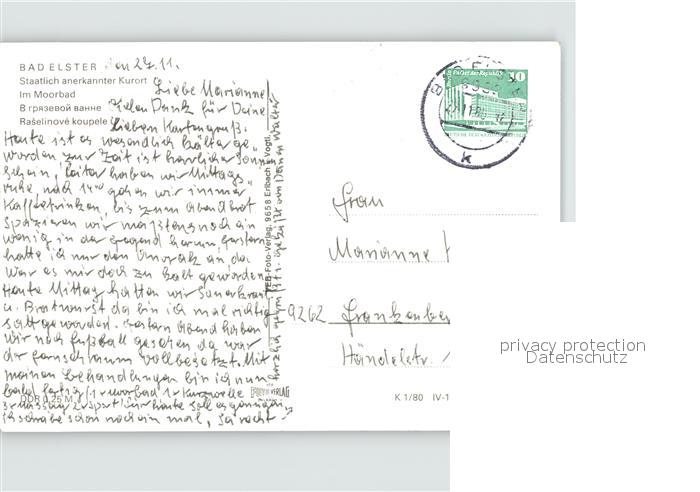 BAD ELSTER den 27.11.
Staatlich anerkannter Kurort
Im Moorbad
В грязевой ванне
Rašelinové koupele
Liebe Marianne!
Vielen Dank für Deine
lieben Kartengruß.
Heute ist es wesendlich kälter ge-
worden, zur Zeit ist herrlicher Sonnen
schein, leiter haben wir Mittags
ruhe nach 14°° gehen wir immer
Kaffetrinken, bis zum Abendbrot
spazieren wir meistens noch ein
wenig in der gegend herum, gestern
hatte ich nur den Anorak an da
war es mir doch zu kalt geworden
Heute Mittag hatten wir Sauerkraut
u. Bratwurst da bin ich mal richtig
satt geworden. Gestern Abend haben
wir noch Fußball gesehen da war
der fernsehraum vollbesetzt. Mit
meinen behandlungen bin ich nun
bald fertig 1 x Moorbad 1 x Kurzwelle
für heute soll es genügen,
ich schreibe schon noch ein mal,
DDR 0,25 M
VEB-Foto-Verlag, 9658 Erlbach i. Vogtl.
FOTO VERLAG
K 1/80 IV-1
Palast der Republik
10
Frau
Marianne
9262 Frankenber
Händelstr.
privacy protection
Datenschutz